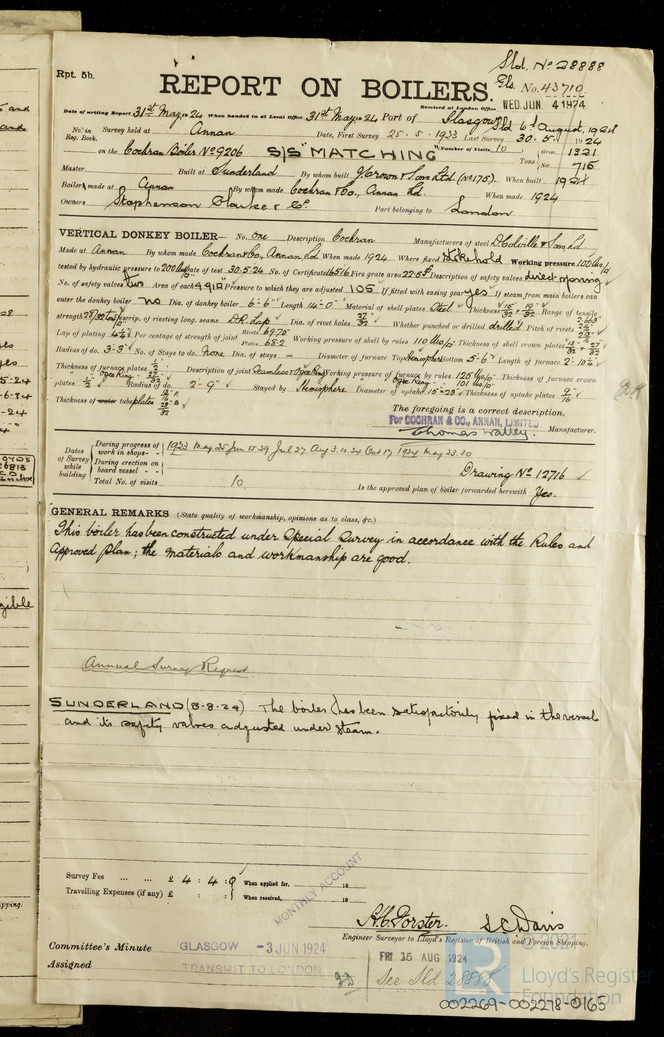 Sld. No 28888
Rpt. 5b.
Gls. No. 43710
REPORT ON BOILERS.
Received at London Office WED. JUN. 4 1924
Date of writing Report 31st May 1924 When handed in at Local Office 31st May 1924 Port of Glasgow
Sld 6th August, 1924
No. in Reg. Book. Survey held at Annan Date, First Survey 25.5.1923 Last Survey 30.5.1924
on the Cochran Boiler No 9206 S/S "MATCHING" (Number of Visits 10) Gross 1321
Tons Net 715
Master Built at Sunderland By whom built J. Crown & Sons Ltd (No 175) When built 1924
Boiler made at Annan By whom made Cochran & Co., Annan Ld. When made 1924
Owners Stephenson Clarke & Co. Port belonging to London
VERTICAL DONKEY BOILER— No. One Description Cochran Manufacturers of steel D. Colville & Sons Ld.
Made at Annan By whom made Cochran & Co, Annan, Ld When made 1924 Where fixed Working pressure 100 lbs/□"
tested by hydraulic pressure to 200 lbs Date of test 30.5.24 No. of Certificate 16516 Fire grate area Description of safety valves direct spring
No. of safety valves two Area of each Pressure to which they are adjusted 105 If fitted with easing gear yes If steam from main boilers can
enter the donkey boiler no Dia. of donkey boiler 6'-6" Length 14'-0" Material of shell plates Steel Thickness Range of tensile
strength Descrip. of riveting long. seams D.R. Lap Dia. of rivet holes Whether punched or drilled drilled Pitch of rivets
Lap of plating Per centage of strength of joint Rivets 69.75 Plates 68.2 Working pressure of shell by rules 110 lbs/□" Thickness of shell crown plates
Radius of do. 3'-3" No. of Stays to do. None Dia. of stays – Diameter of furnace Top Hemisphere Bottom 5'-6" Length of furnace
Thickness of furnace plates Description of joint Seamless & Ogee Ring Working pressure of furnace by rules 125 lbs/□" Thickness of furnace crown
Ogee Ring 101 lbs/□"
plates Radius of do. 2'-9" Stayed by Hemisphere Diameter of uptake Thickness of uptake plates 9/16
Thickness of water tube plates
The foregoing is a correct description,
For COCHRAN & CO., ANNAN, LIMITED
Manufacturer.
Dates of Survey while building
During progress of work in shops - - 1923 May 25 Jun 15 29 Jul 27 Aug 3. 10. 24 Oct 17 1924 May 23. 30
During erection on board vessel - - -
Drawing No 12716
Total No. of visits 10 Is the approved plan of boiler forwarded herewith Yes.
GENERAL REMARKS (State quality of workmanship, opinions as to class, &c.)
This boiler has been constructed under Special Survey in accordance with the Rules and
Approved plan; the materials and workmanship are good.
Annual Survey Request
SUNDERLAND (8-8-24) The boiler has been satisfactorily fixed in the vessel
and its safety valves adjusted under steam.
Survey Fee ... ... £ 4 : 4 : 0 When applied for, 19
Travelling Expenses (if any) £ : : When received, 19
MONTHLY ACCOUNT
A.C. Forster. S C Davis
Engineer Surveyor to Lloyd's Register of British and Foreign Shipping.
Committee's Minute GLASGOW - 3 JUN 1924
FRI 15 AUG 1924
Assigned TRANSMIT TO LONDON
See Sld 28888
© 2021
Lloyd's Register
Foundation
002269-002278-0165